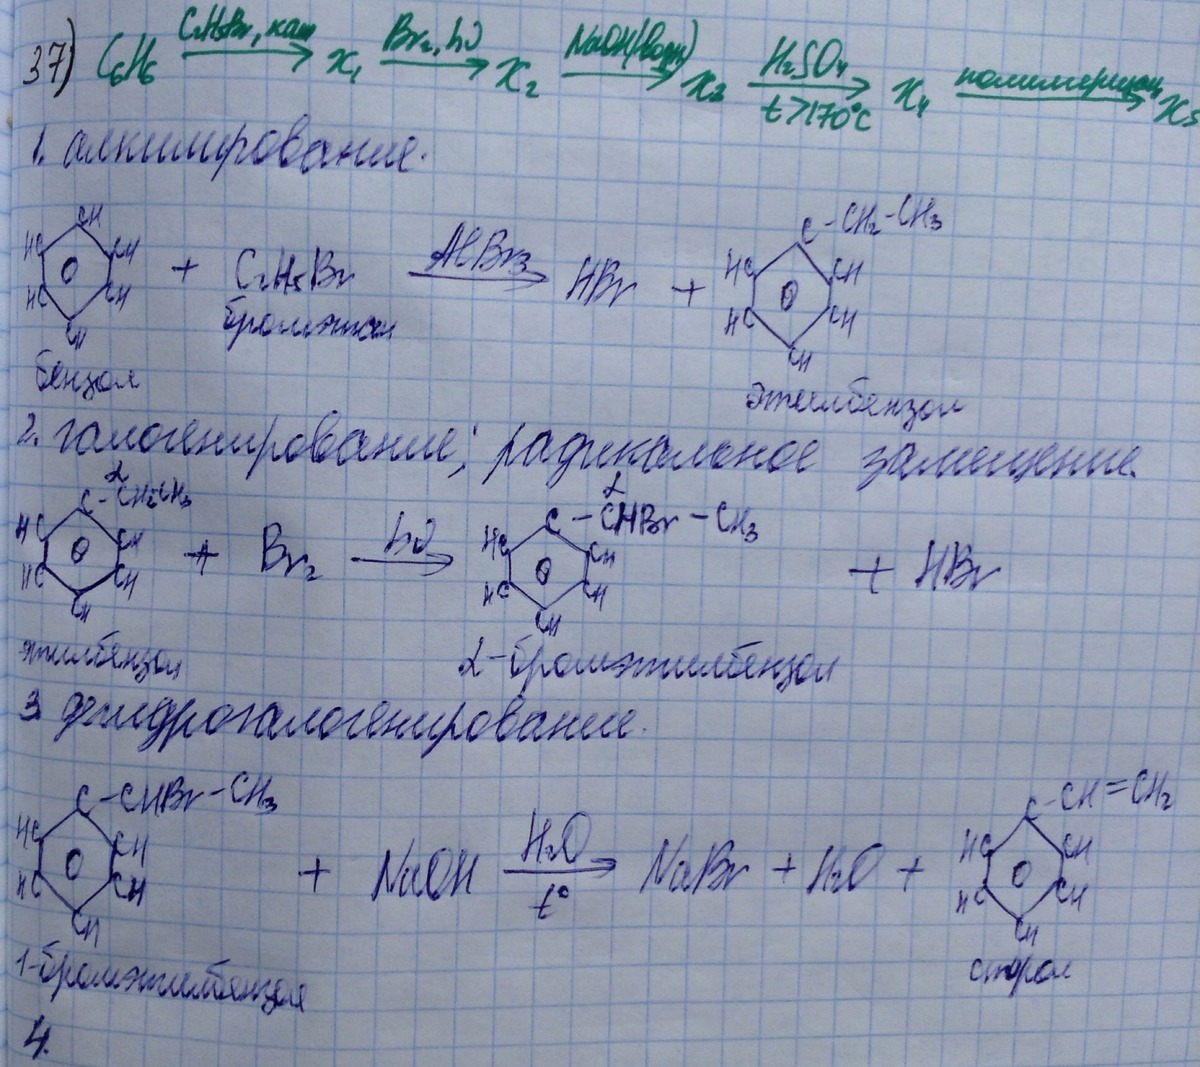 37) C₆H₆ C₂H₅Br, кат → X₁ Br₂, hν → X₂ NaOH(водн) → X₃ H₂SO₄ t>170°C → X₄ полимеризац → X₅
1. алкилирование.
HC CH CH CH CH HC + C₂H₅Br AlBr₃ → HBr + C-CH₂-CH₃ HC CH CH CH HC
бензол бромэтан этилбензол
2. галогенирование; радикальное замещение.
C-CH₂CH₃ α HC CH CH CH HC + Br₂ hν → C-CHBr-CH₃ α HC CH CH CH HC + HBr
этилбензол α-бромэтилбензол
3. дегидрогалогенирование.
C-CHBr-CH₃ HC CH CH CH HC + NaOH H₂O t° → NaBr + H₂O + C-CH=CH₂ HC CH CH CH HC
1-бромэтилбензол стирол
4.